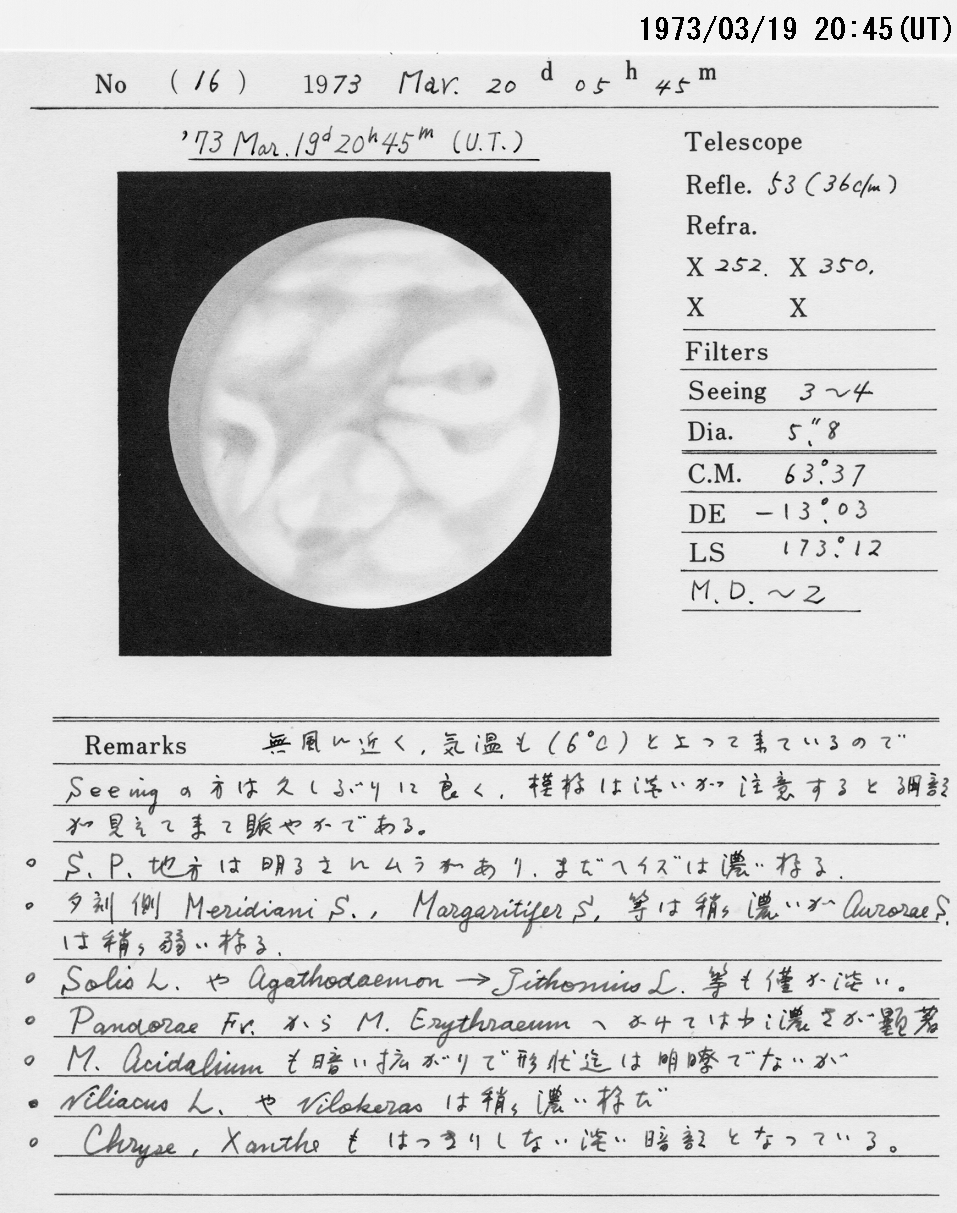 1973/03/19 20:45(UT)
No (16) 1973 Mar. 20 d 05 h 45 m
'73 Mar. 19d 20h 45m (U.T.)
Telescope
Refle. 53 (36c/m)
Refra.
X 252. X 350.
X X
Filters
Seeing 3~4
Dia. 5."8
C.M. 63.°37
DE -13.°03
LS 173.°12
M.D. ~2
Remarks 無風に近く、気温も(6°C)と上って来ているので
Seeingの方は久しぶりに良く、模様は淡いが注意すると細部
が見えて来て賑やかである。
○ S.P.地方は明るさにムラがあり、まだヘイズは濃い様る.
○ 夕刻側 Meridiani S., Margaritifer S. 等は稍々濃いが Aurorae S.
は稍々弱い様る.
○ Solis L. や Agathodaemon → Tithonius L. 等も僅か淡い。
○ Pandorae Fr. から M. Erythraeum へかけては濃さが顕著
○ M. Acidalium も暗い拡がりで形状迄は明瞭でないが
● Niliacus L. や Nilokeras は稍々濃い様だ
○ Chryse, Xanthe も はっきりしない淡い暗部となっている。